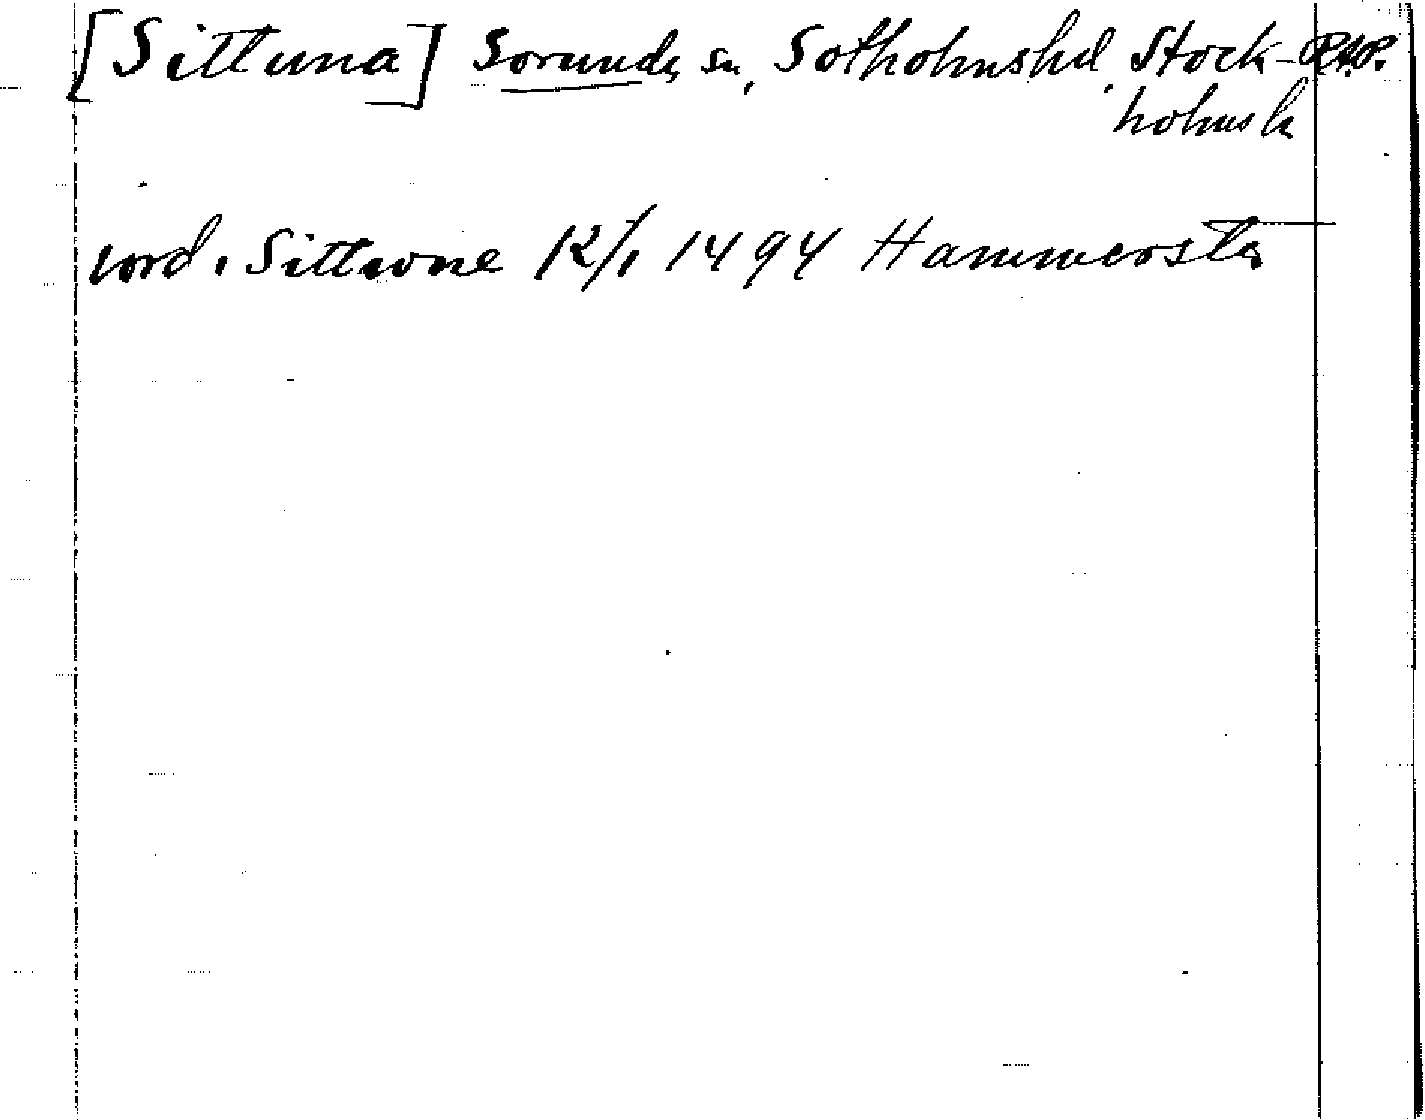 [Sittuna] Sorunda sn, Sotholmshd, Stock- RAP.
holms l.
vord. Sittwne 12/1 1494 Hammersta